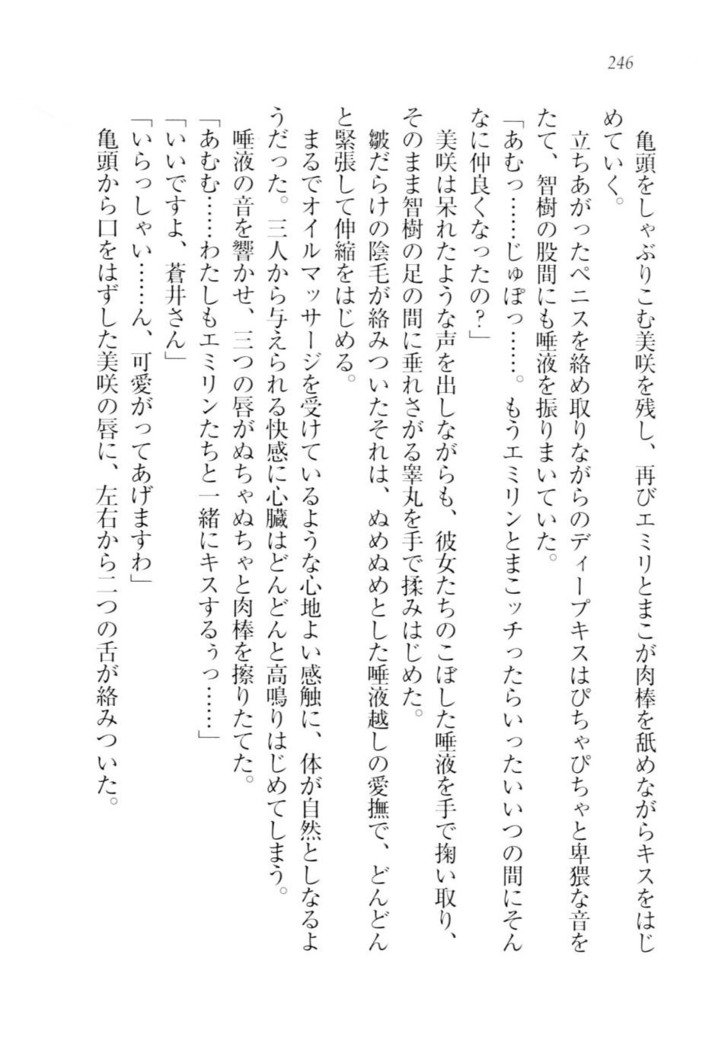 246
亀頭をしゃぶりこむ美咲を残し、再びエミリとまこが肉棒を舐めながらキスをはじ
めていく。
立ちあがったペニスを絡め取りながらのディープキスはぴちゃぴちゃと卑猥な音を
たて、智樹の股間にも唾液を振りまいていた。
「あむっ……じゅぽっ……。もうエミリンとまこッチったらいったいいつの間にそん
なに仲良くなったの？」
美咲は呆れたような声を出しながらも、彼女たちのこぼした唾液を手で掬い取り、
そのまま智樹の足の間に垂れさがる睾丸を手で揉みはじめた。
皺だらけの陰毛が絡みついたそれは、ぬめぬめとした唾液越しの愛撫で、どんどん
と緊張して伸縮をはじめる。
まるでオイルマッサージを受けているような心地よい感触に、体が自然としなるよ
うだった。三人から与えられる快感に心臓はどんどんと高鳴りはじめてしまう。
唾液の音を響かせ、三つの唇がぬちゃぬちゃと肉棒を擦りたてた。
「あむむ……わたしもエミリンたちと一緒にキスするぅっ……」
「いいですよ、蒼井さん」
「いらっしゃい……ん、可愛がってあげますわ」
亀頭から口をはずした美咲の唇に、左右から二つの舌が絡みついた。